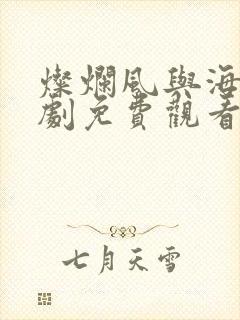 燦爛風與海
劇免費觀看
七月天雪